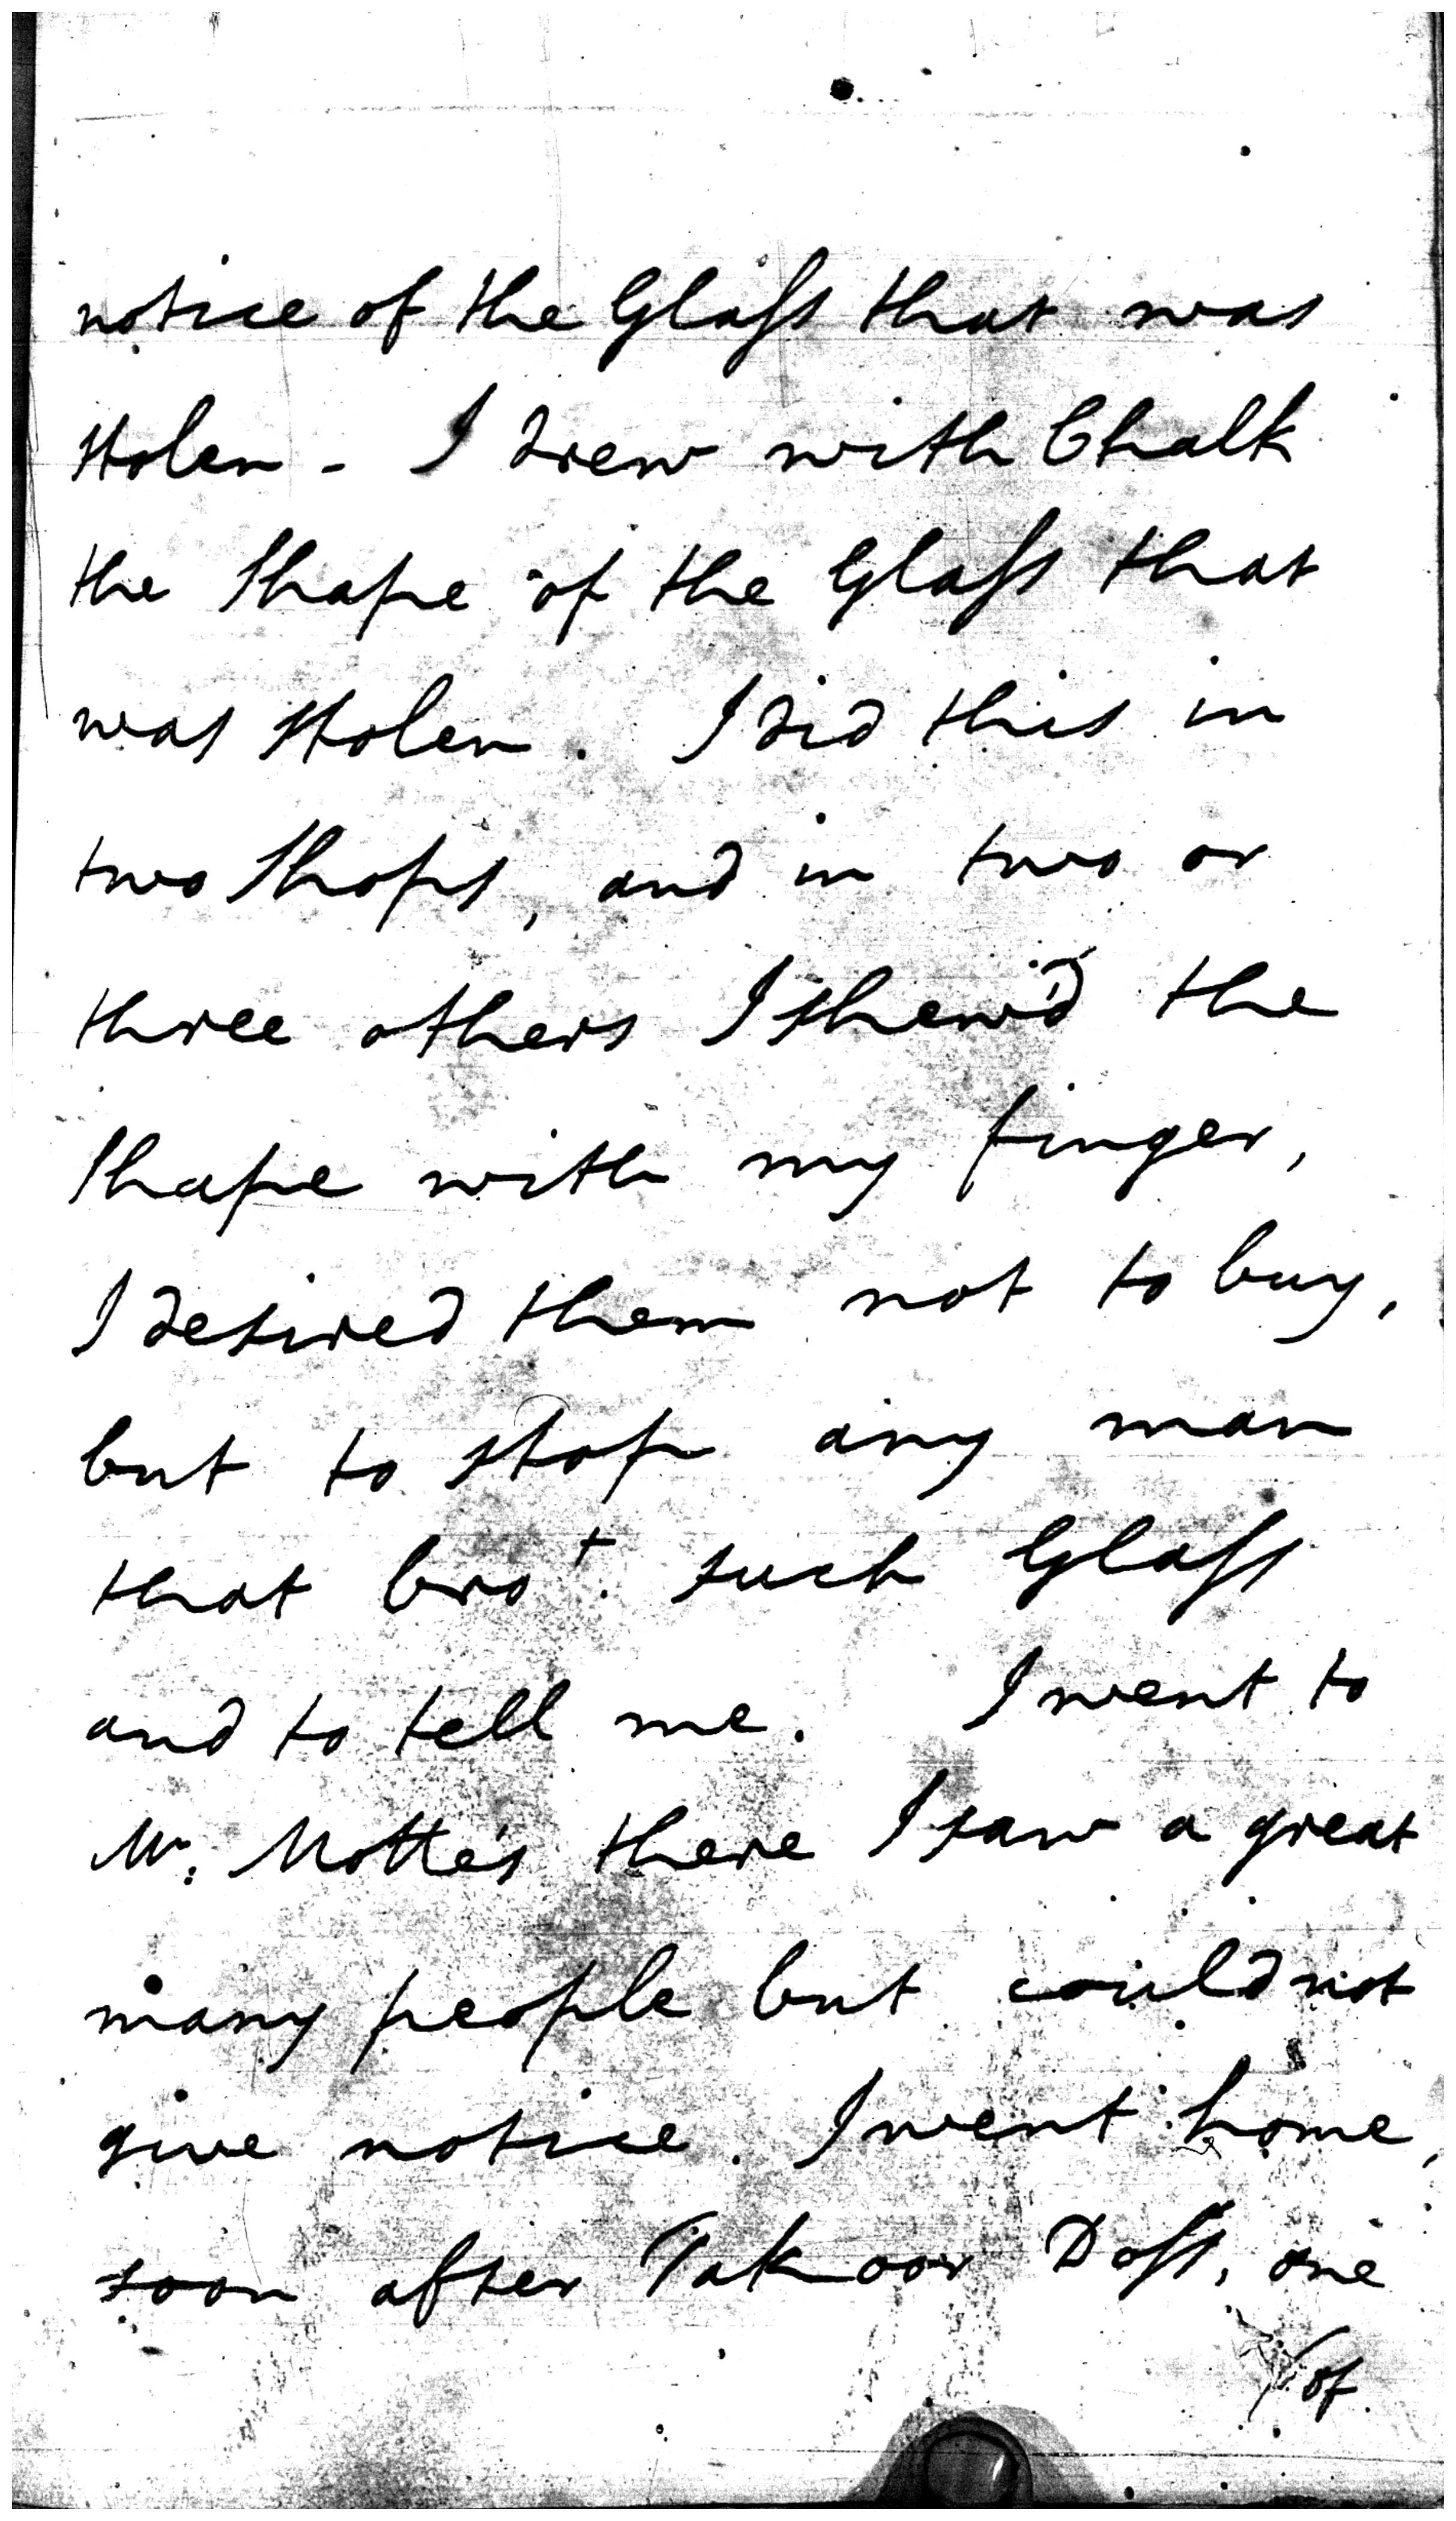 notice of the Glass that was
stolen - I drew with Chalk
the Shape of the Glass that
was stolen. I did this in
two Shops, and in two or
three others I shew'd the
Shape with my finger,
I desired them not to buy,
but to stop any man
that bro.t such Glass
and to tell me. I went to
Mr. Motte's there I saw a great
many people but could not
give notice. I went home,
soon after Takoor Doss, one
of